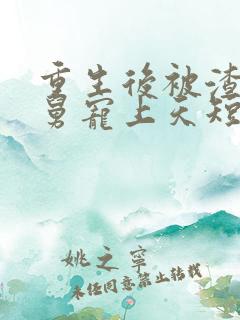 重生後被渣
舅寵上天短
姚之寧
未經同意禁止轉載